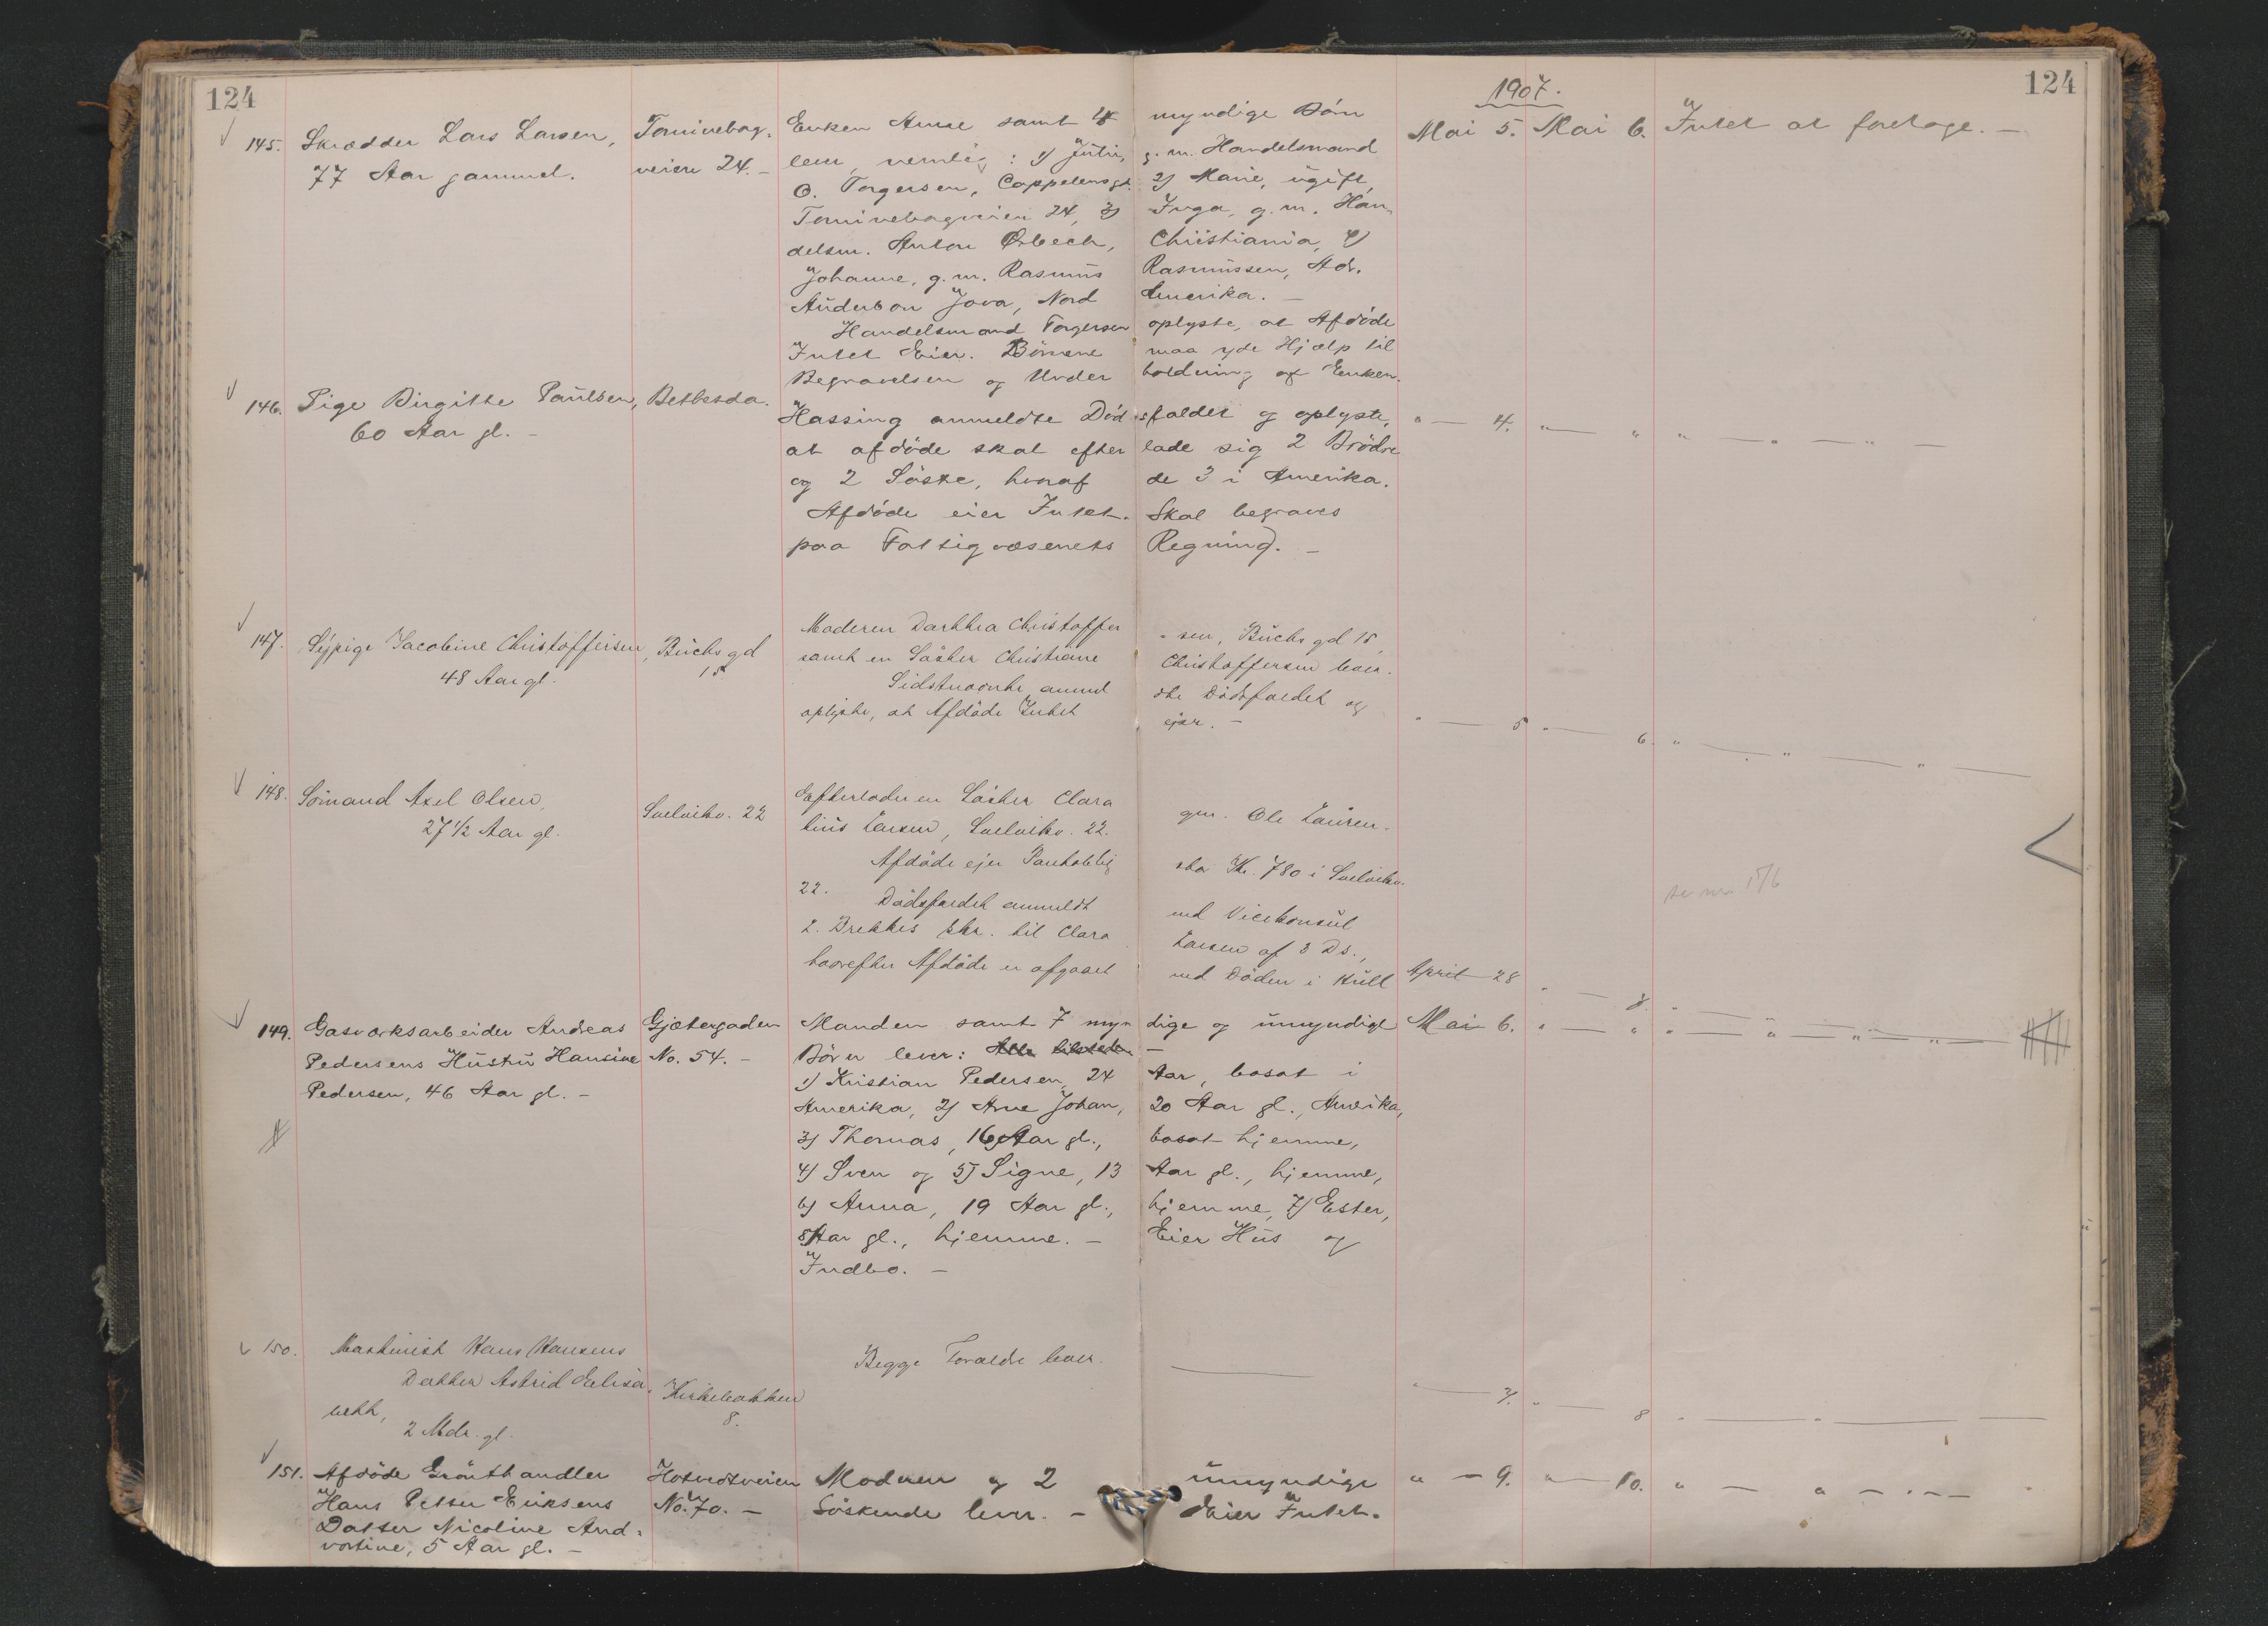 124
1907.
124
145. Skrædder Lars Larsen, Tornivebag- Enken Anne samt 4 myndige Börn Mai 5. Mai 6. Intet at foretage. —
77 Aar gammel. veien 24. — lever, nemlig: 1) Julie, g. m. Handelsmand
O. Torgersen, Cappelensgt. 2) Marie, ugift,
Tornivebagveien 24, 3) Inga, g. m. Han-
delsm. Anton Örbech, Christiania, 4)
Johanne, g. m. Rasmus Rasmussen, Adr.
Audubon Jova, Nord Amerika. —
Handelsmand Torgersen oplyste, at Afdöde
Intet Eier. Börnene maa yde Hjælp til
Begravelsen og Under holdning af Enken.
146. Pige Birgitte Paulsen, Bethesda. Hassing anmeldte Död sfaldet og oplyste, " — 4. " — " " — " — " —
60 Aar gl. — at afdöde skal efter lade sig 2 Brödre
og 2 Söstre, hvoraf de 3 i Amerika.
Afdöde eier Intet. Skal begraves
paa Fattigvæsenets Regning. —
147. Sypige Jacobine Christoffersen, Buchs gd Moderen Dorthea Christoffer - sen, Buchs gd 15,
48 Aar gl. 15 samt en Söster Christiane Christoffersen lever.
Sidstnævnte anmel dte Dödsfaldet og
oplyste, at Afdöde Intet ejer. — " — 5 " — 6. " — " — " —
148. Sömand Axel Olsen, Svelvikv. 22 Efterlader en Söster Clara gm. Ole Lauren-
27 1/2 Aar gl. tius Larsen, Svelvikv. 22.
Afdöde ejer Panteoblig sta Kr. 780 i Svelvikv.
22. Dödsfaldet anmeldt ved Vicekonsul se nr. 176
L. Brekkes skr. til Clara Larsen af 3 Ds.,
hvorefter Afdöde er afgaaet ved Döden i Hull April 28 " — 8. " —
149. Gasværksarbeider Andreas Gjætergaden Manden samt 7 myn dige og umyndige Mai 6. " — " " — " — " — " —
Pedersens Hustru Hansine No. 54. — Börn lever: Alle tilstede —
Pedersen, 46 Aar gl. — 1) Kristian Pedersen, 24 Aar, bosat i
Amerika, 2) Arne Johan, 20 Aar gl., Amerika,
3) Thomas, 16 Aar gl., bosat hjemme,
4) Sven og 5) Signe, 13 Aar gl., hjemme,
6) Anna, 19 Aar gl., hjemme, 7) Ester,
8 Aar gl., hjemme. — Eier Hus og
Indbo. —
150. Maskinist Hans Hansens Begge Forældre lever. —
Datter Astrid Elisa- Kirkebakken " — 7. " — 8 " — " —
beth, 8.
2 Mdr. gl.
151. Afdöde Grönthandler Hotvedtveien Moderen og 2 umyndige " — 9. " — 10. " — " — " —
Hans Petter Eriksens No. 70. — Söskende lever. — Eier Intet.
Datter Nicoline And-
vortine, 5 Aar gl. —